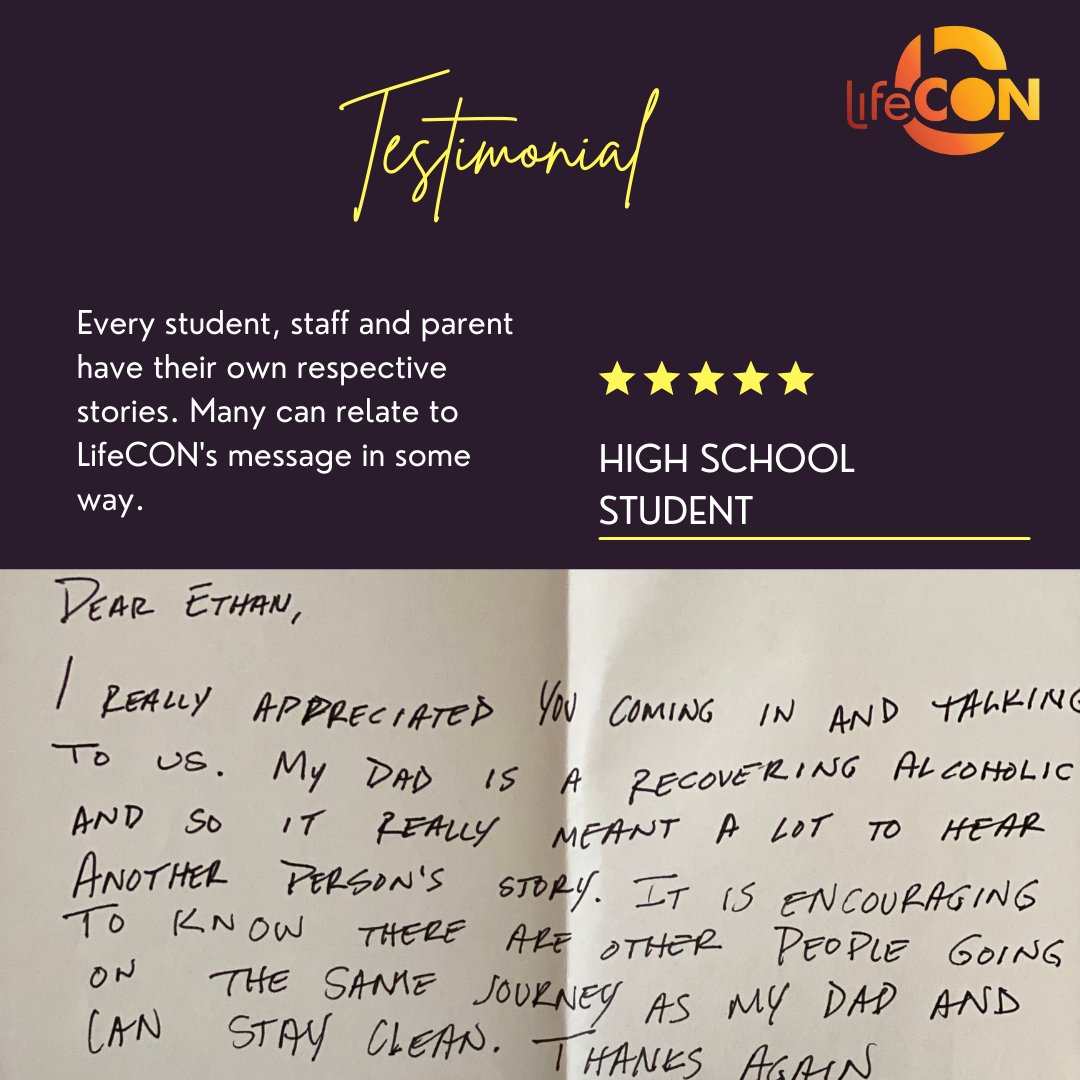 lifeCON
Testimonial
Every student, staff and parent
have their own respective
stories. Many can relate to
LifeCON's message in some
way.
HIGH SCHOOL
STUDENT
DEAR ETHAN,
I REALLY APPRECIATED YOU COMING IN AND TALKING
TO US. MY DAD IS A RECOVERING ALCOHOLIC
AND SO IT REALLY MEANT A LOT TO HEAR
ANOTHER PERSON'S STORY. IT IS ENCOURAGING
TO KNOW THERE ARE OTHER PEOPLE GOING
ON THE SAME JOURNEY AS MY DAD AND
CAN STAY CLEAN. THANKS AGAIN